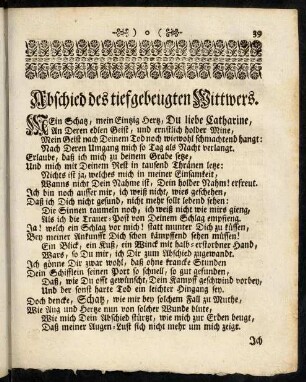 ) o ( 39
Abschied des tiefgebeugten Wittwers.
MEin Schatz, mein Eintzig Hertz, Du liebe Catharine,
An Deren edlen Geist, und ernstlich holder Mine,
Mein Geist nach Deinem Tod noch wiewohl schmachtend hangt:
Nach Deren Umgang mich so Tag als Nacht verlangt.
Erlaube, daß ich mich zu deinem Grabe setze,
Und mich mit Deinem Rest in tausend Thränen letze:
Nichts ist ja, welches mich in meiner Einsamkeit,
Wanns nicht Dein Nahme ist, Dein holder Nahm! erfreut.
Ich bin noch ausser mir, ich weiß nicht, wies geschehen,
Daß ich Dich nicht gesund, nicht mehr sollt lebend sehen:
Die Sinnen taumeln noch, ich weiß nicht wie mirs gieng,
Als ich die Trauer-Post von Deinem Schlag empfieng.
Ja! welch ein Schlag vor mich! statt munter Dich zu küssen,
Bey meiner Ankunfft Dich schon kämpffend sehen müssen!
Ein Blick, ein Kuß, ein Winck mit halb-erstorbner Hand,
Wars, so Du mir, ich Dir zum Abschied zugewandt.
Ich gönne Dir zwar wohl, daß ohne krancke Stunden
Dein Schifflein seinen Port so schnell, so gut gefunden,
Daß, wie Du offt gewünscht, Dein Kampff geschwind vorbey,
Und der sonst harte Tod ein leichter Hingang sey.
Doch dencke, Schatz, wie mir bey solchem Fall zu Muthe,
Wie Aug und Hertze nun von solcher Wunde blute,
Wie mich Dein Abschied stürtz, wie mich zur Erden beugt,
Daß meiner Augen-Lust sich nicht mehr um mich zeigt.
Ich